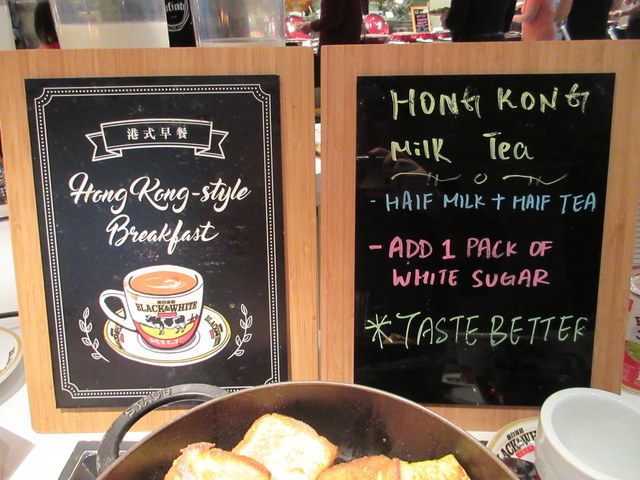 港式早餐
Hong Kong-style
Breakfast
BLACK&WHITE
MILK
HONG KONG
MilK Tea
- HAlF MILK + HAlF TEA
- ADD 1 PACK OF
WHITE SUGAR
* TASTE BETTER
STAUB